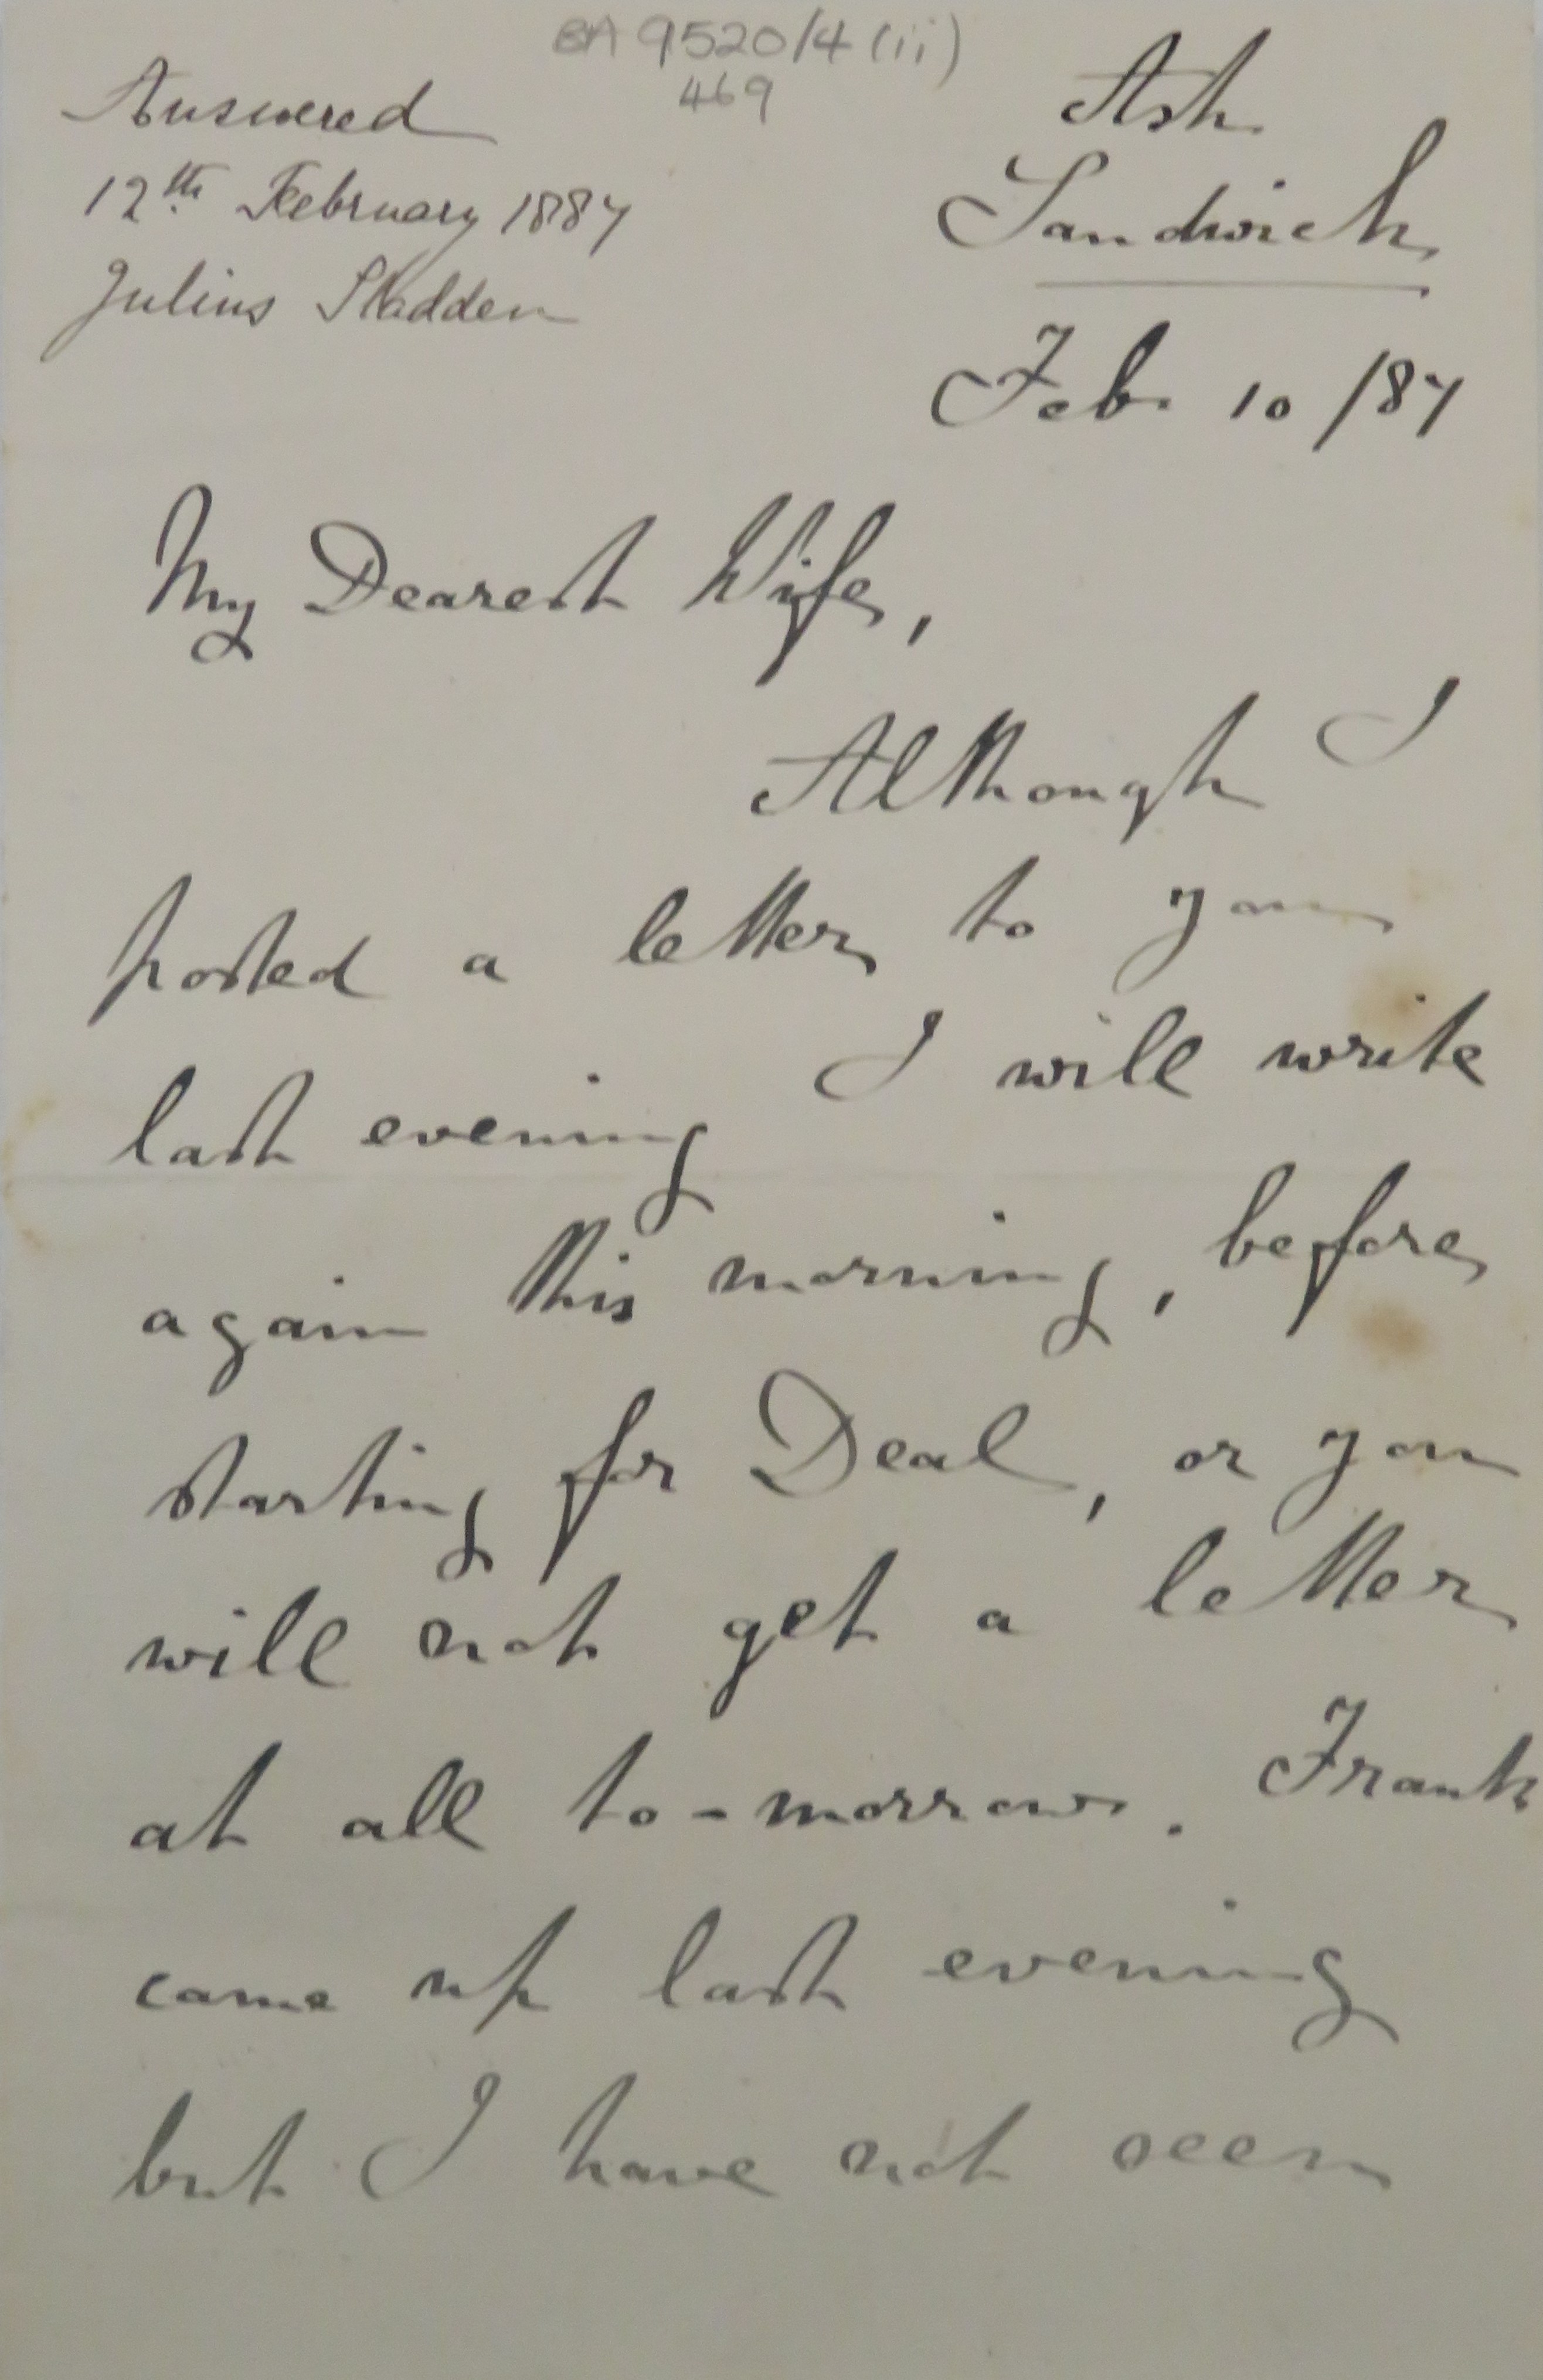 BA 9520/4 (iii)
469
Answered
12th February 1887
Julius Sladden
Ash
Sandwich
Feb. 10 /87
My Dearest Wife,
Although I
posted a letter to you
last evening I will write
again this morning, before
starting for Deal, or you
will not get a letter
at all to-morrow. Frank
came up last evening
but I have not seen